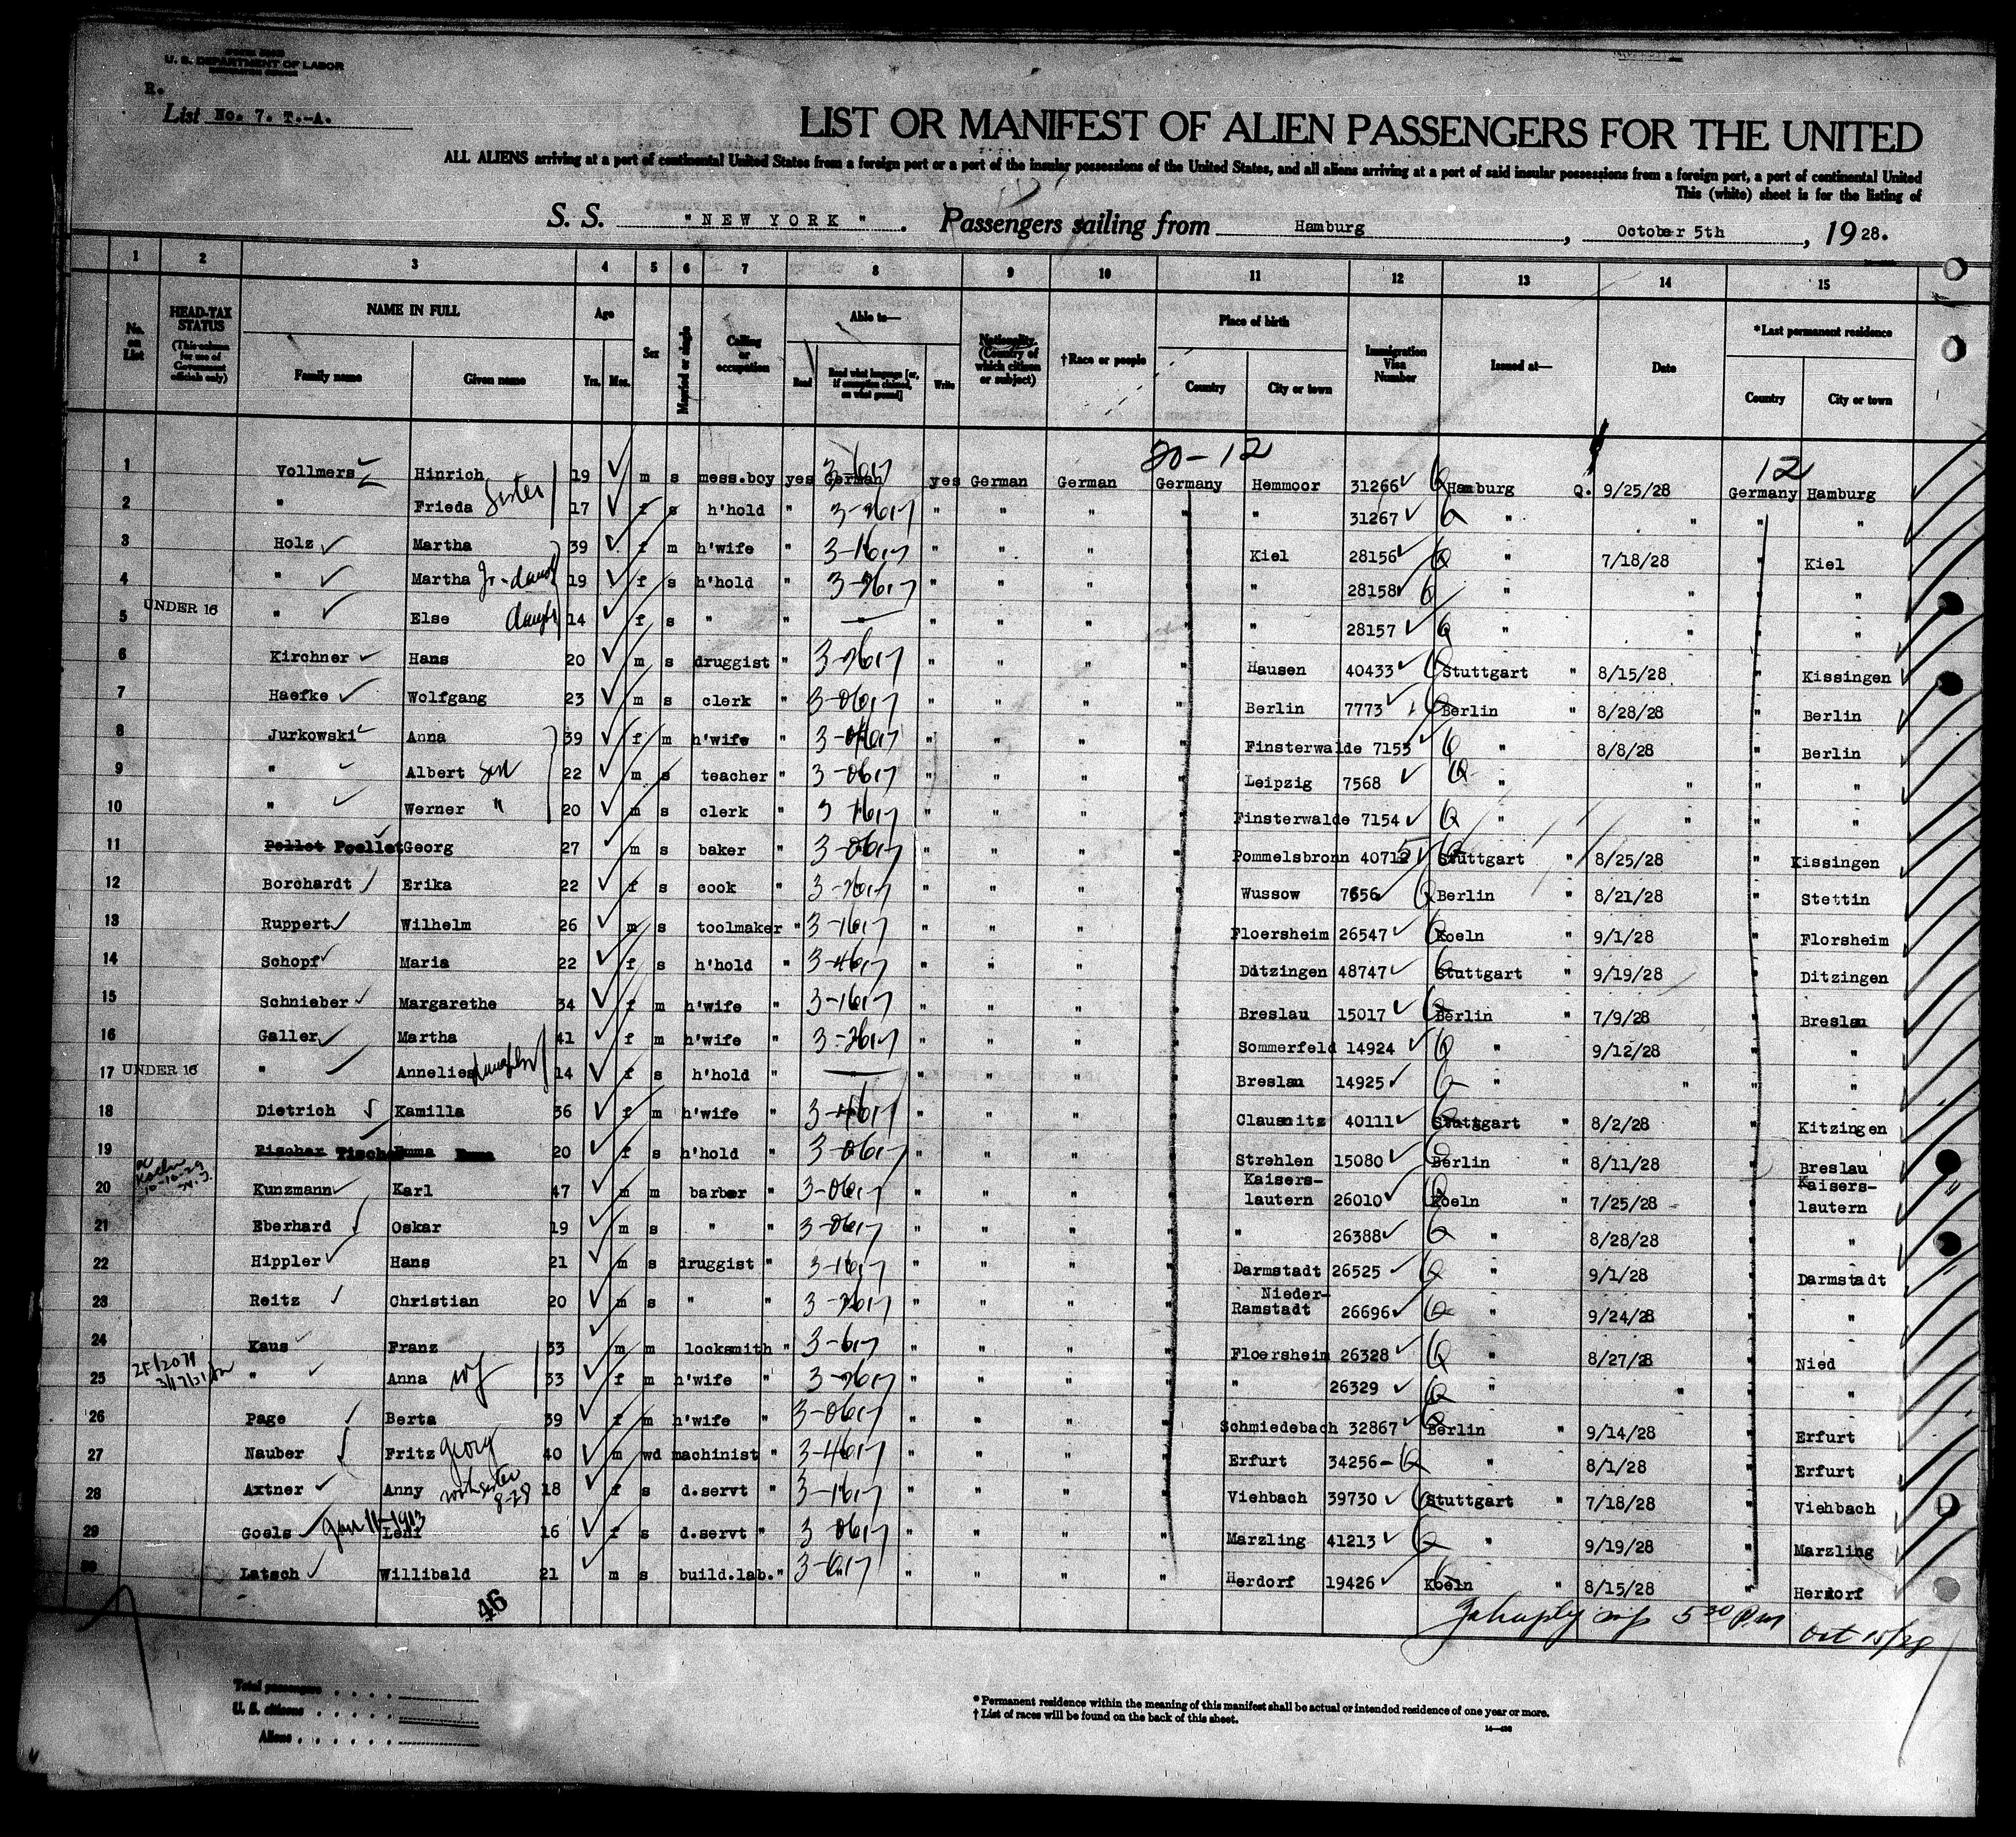 U. S. DEPARTMENT OF LABOR
R.
List No. 7. T.-A.
LIST OR MANIFEST OF ALIEN PASSENGERS FOR THE UNITED
ALL ALIENS arriving at a port of continental United States from a foreign port or a port of the insular possessions of the United States, and all aliens arriving at a port of said insular possessions from a foreign port, a port of continental United
This (white) sheet is for the listing of
S. S. "NEW YORK". Passengers sailing from Hamburg, October 5th, 1928.
1 2 3 4 5 6 7 8 9 10 11 12 13 14 15
No. on List
HEAD-TAX STATUS (This column for use of Government officials only)
NAME IN FULL Family name Given name
Age Yrs. Mos.
Sex
Married or single
Calling or occupation
Able to— Read Read what language [or, if exemption claimed, on what ground] Write
Nationality. (Country of which citizen or subject)
†Race or people
Place of birth Country City or town
Immigration Visa Number
Issued at—
Date
*Last permanent residence Country City or town
20-12 12
1 Vollmers Hinrich 19 m s mess.boy yes German yes German German Germany Hemmoor 31266 Hamburg Q. 9/25/28 Germany Hamburg
2 " Frieda Sister 17 f s h'hold " 3-2617 " " " " " 31267 " " " "
3 Holz Martha 39 f m h'wife " 3-1617 " " " " Kiel 28156 " 7/18/28 " Kiel
4 " Martha Jr-daug 19 f s h'hold " 3-2617 " " " " " 28158 " " " "
5 UNDER 16 " Else daugh 14 f s " " — " " " " " 28157 " " " "
6 Kirchner Hans 20 m s druggist " 3-2617 " " " " Hausen 40433 Stuttgart " 8/15/28 " Kissingen
7 Haefke Wolfgang 23 m s clerk " 3-0617 " " " " Berlin 7773 Berlin " 8/28/28 " Berlin
8 Jurkowski Anna 39 f m h'wife " 3-0617 " " " " Finsterwalde 7153 " 8/8/28 " Berlin
9 " Albert Son 22 m s teacher " 3-0617 " " " " Leipzig 7568 " " " "
10 " Werner " 20 m s clerk " 3 1617 " " " " Finsterwalde 7154 " " " "
11 Pellet Poellet Georg 27 m s baker " 3-0617 " " " " Pommelsbronn 40712 Stuttgart " 8/25/28 " Kissingen
12 Borchardt Erika 22 f s cook " 3-2617 " " " " Wussow 7656 Berlin " 8/21/28 " Stettin
13 Ruppert Wilhelm 26 m s toolmaker " 3-1617 " " " " Floersheim 26547 Koeln " 9/1/28 " Florsheim
14 Schopf Maria 22 f s h'hold " 3-4617 " " " " Ditzingen 48747 Stuttgart " 9/19/28 " Ditzingen
15 Schnieber Margarethe 34 f m h'wife " 3-1617 " " " " Breslau 15017 Berlin " 7/9/28 " Breslau
16 Galler Martha 41 f m h'wife " 3-2617 " " " " Sommerfeld 14924 " 9/12/28 " "
17 UNDER 16 " Annelies daughter 14 f s h'hold " — " " " " Breslau 14925 " " " "
18 Dietrich Kamilla 36 f m h'wife " 3-4617 " " " " Clausnitz 40111 Stuttgart " 8/2/28 " Kitzingen
19 Fischer Tischer Emma Emma 20 f s h'hold " 3-0617 " " " " Strehlen 15080 Berlin " 8/11/28 " Breslau
20 Kunzmann Karl 47 m m barber " 3-0617 " " " " Kaisers-lautern 26010 Koeln " 7/25/28 " Kaisers-lautern
21 Eberhard Oskar 19 m s " " 3-0617 " " " " " 26388 " 8/28/28 " "
22 Hippler Hans 21 m s druggist " 3-1617 " " " " Darmstadt 26525 " 9/1/28 " Darmstadt
23 Reitz Christian 20 m s " " 3-2617 " " " " Nieder-Ramstadt 26696 " 9/24/28 " "
24 Kaus Franz 33 m m locksmith " 3-617 " " " " Floersheim 26328 " 8/27/28 " Nied
25 " Anna wf 33 f m h'wife " 3-2617 " " " " " 26329 " " " "
26 Page Berta 39 f m h'wife " 3-0617 " " " " Schmiedebach 32867 Berlin " 9/14/28 " Erfurt
27 Nauber Fritz Georg 40 m wd machinist " 3-4617 " " " " Erfurt 34256 " 8/1/28 " Erfurt
28 Axtner Anny 18 f s d.servt " 3-1617 " " " " Viehbach 39730 Stuttgart " 7/18/28 " Viehbach
29 Goels Leni 16 f s d.servt " 3 0617 " " " " Marzling 41213 " 9/19/28 " Marzling
30 Latsch Willibald 21 m s build.lab. " 3-0617 " " " " Herdorf 19426 Koeln " 8/15/28 " Herdorf
46
5 30 Pm Oct 15/28
Total passengers
U. S. citizens
Aliens
* Permanent residence within the meaning of this manifest shall be actual or intended residence of one year or more.
† List of races will be found on the back of this sheet.